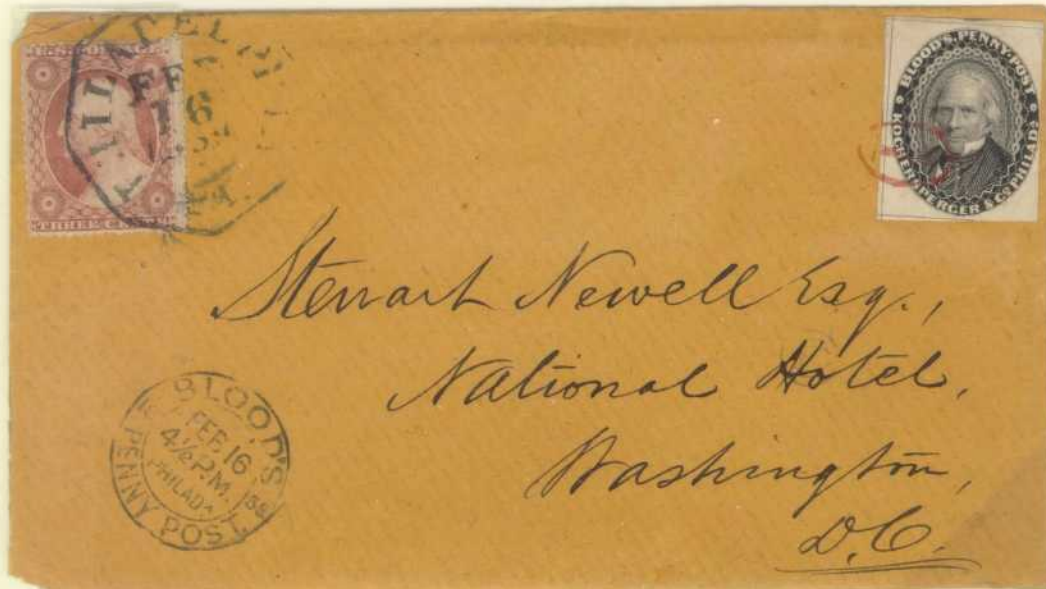 U.S. POSTAGE
PHILADELPHIA
FEB
16
Pa.
THREE CENTS
BLOOD'S PENNY POST
KOCHERSPERGER & CO. PHILADA.
Stewart Newell Esq.,
National Hotel,
Washington,
D.C.
BLOOD'S
FEB 16
4½ P.M. '58
PHILADA
PENNY POST